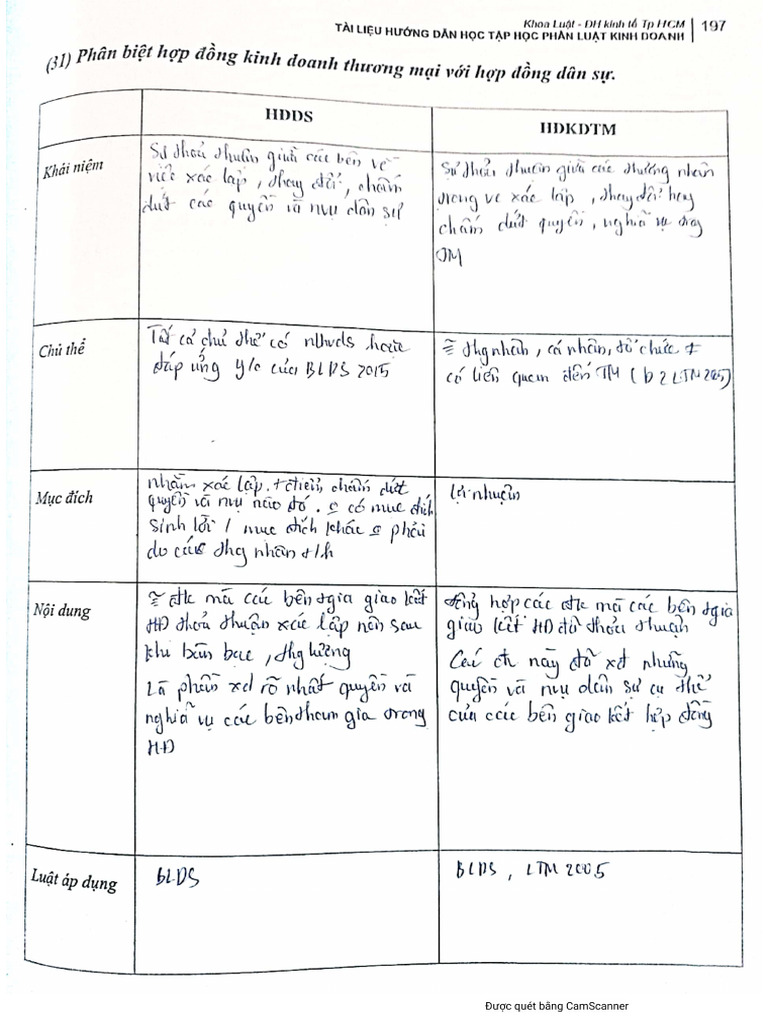 Khoa Luật - ĐH kinh tế Tp HCM
TÀI LIỆU HƯỚNG DẪN HỌC TẬP HỌC PHẦN LUẬT KINH DOANH | 197
(31) Phân biệt hợp đồng kinh doanh thương mại với hợp đồng dân sự.
HDDS
HDKDTM
Khái niệm
Sự thoả thuận giữa các bên về
việc xác lập, thay đổi, chấm
dứt các quyền và nvụ dân sự
Sự thoả thuận giữa các thương nhân
trong vc xác lập, thay đổi hay
chấm dứt quyền, nghĩa vụ trong
TM
Chủ thể
Tất cả chủ thể có nlhvds hoặc
đáp ứng y/c của BLDS 2015
thg nhân, cá nhân, tổ chức ≠
có liên quan đến TM (Đ2 LTM 2005)
Mục đích
nhằm xác lập, chấm dứt
quyền và nvụ nào đó. có mục đích
sinh lời / mục đích khác phải
do các thg nhân t/h
Lợi nhuận
Nội dung
đk mà các bên tgia giao kết
HĐ thoả thuận xác lập nên sau
khi bàn bạc, thg lượng
Là phần xđ rõ nhất quyền và
nghĩa vụ các bên tham gia trong
HĐ
tổng hợp các đk mà các bên tgia
giao kết HĐ đã thoả thuận
Các đk này đã xđ những
quyền và nvụ dân sự cụ thể
của các bên giao kết hợp đồng
Luật áp dụng
BLDS
BLDS, LTM 2005
Được quét bằng CamScanner